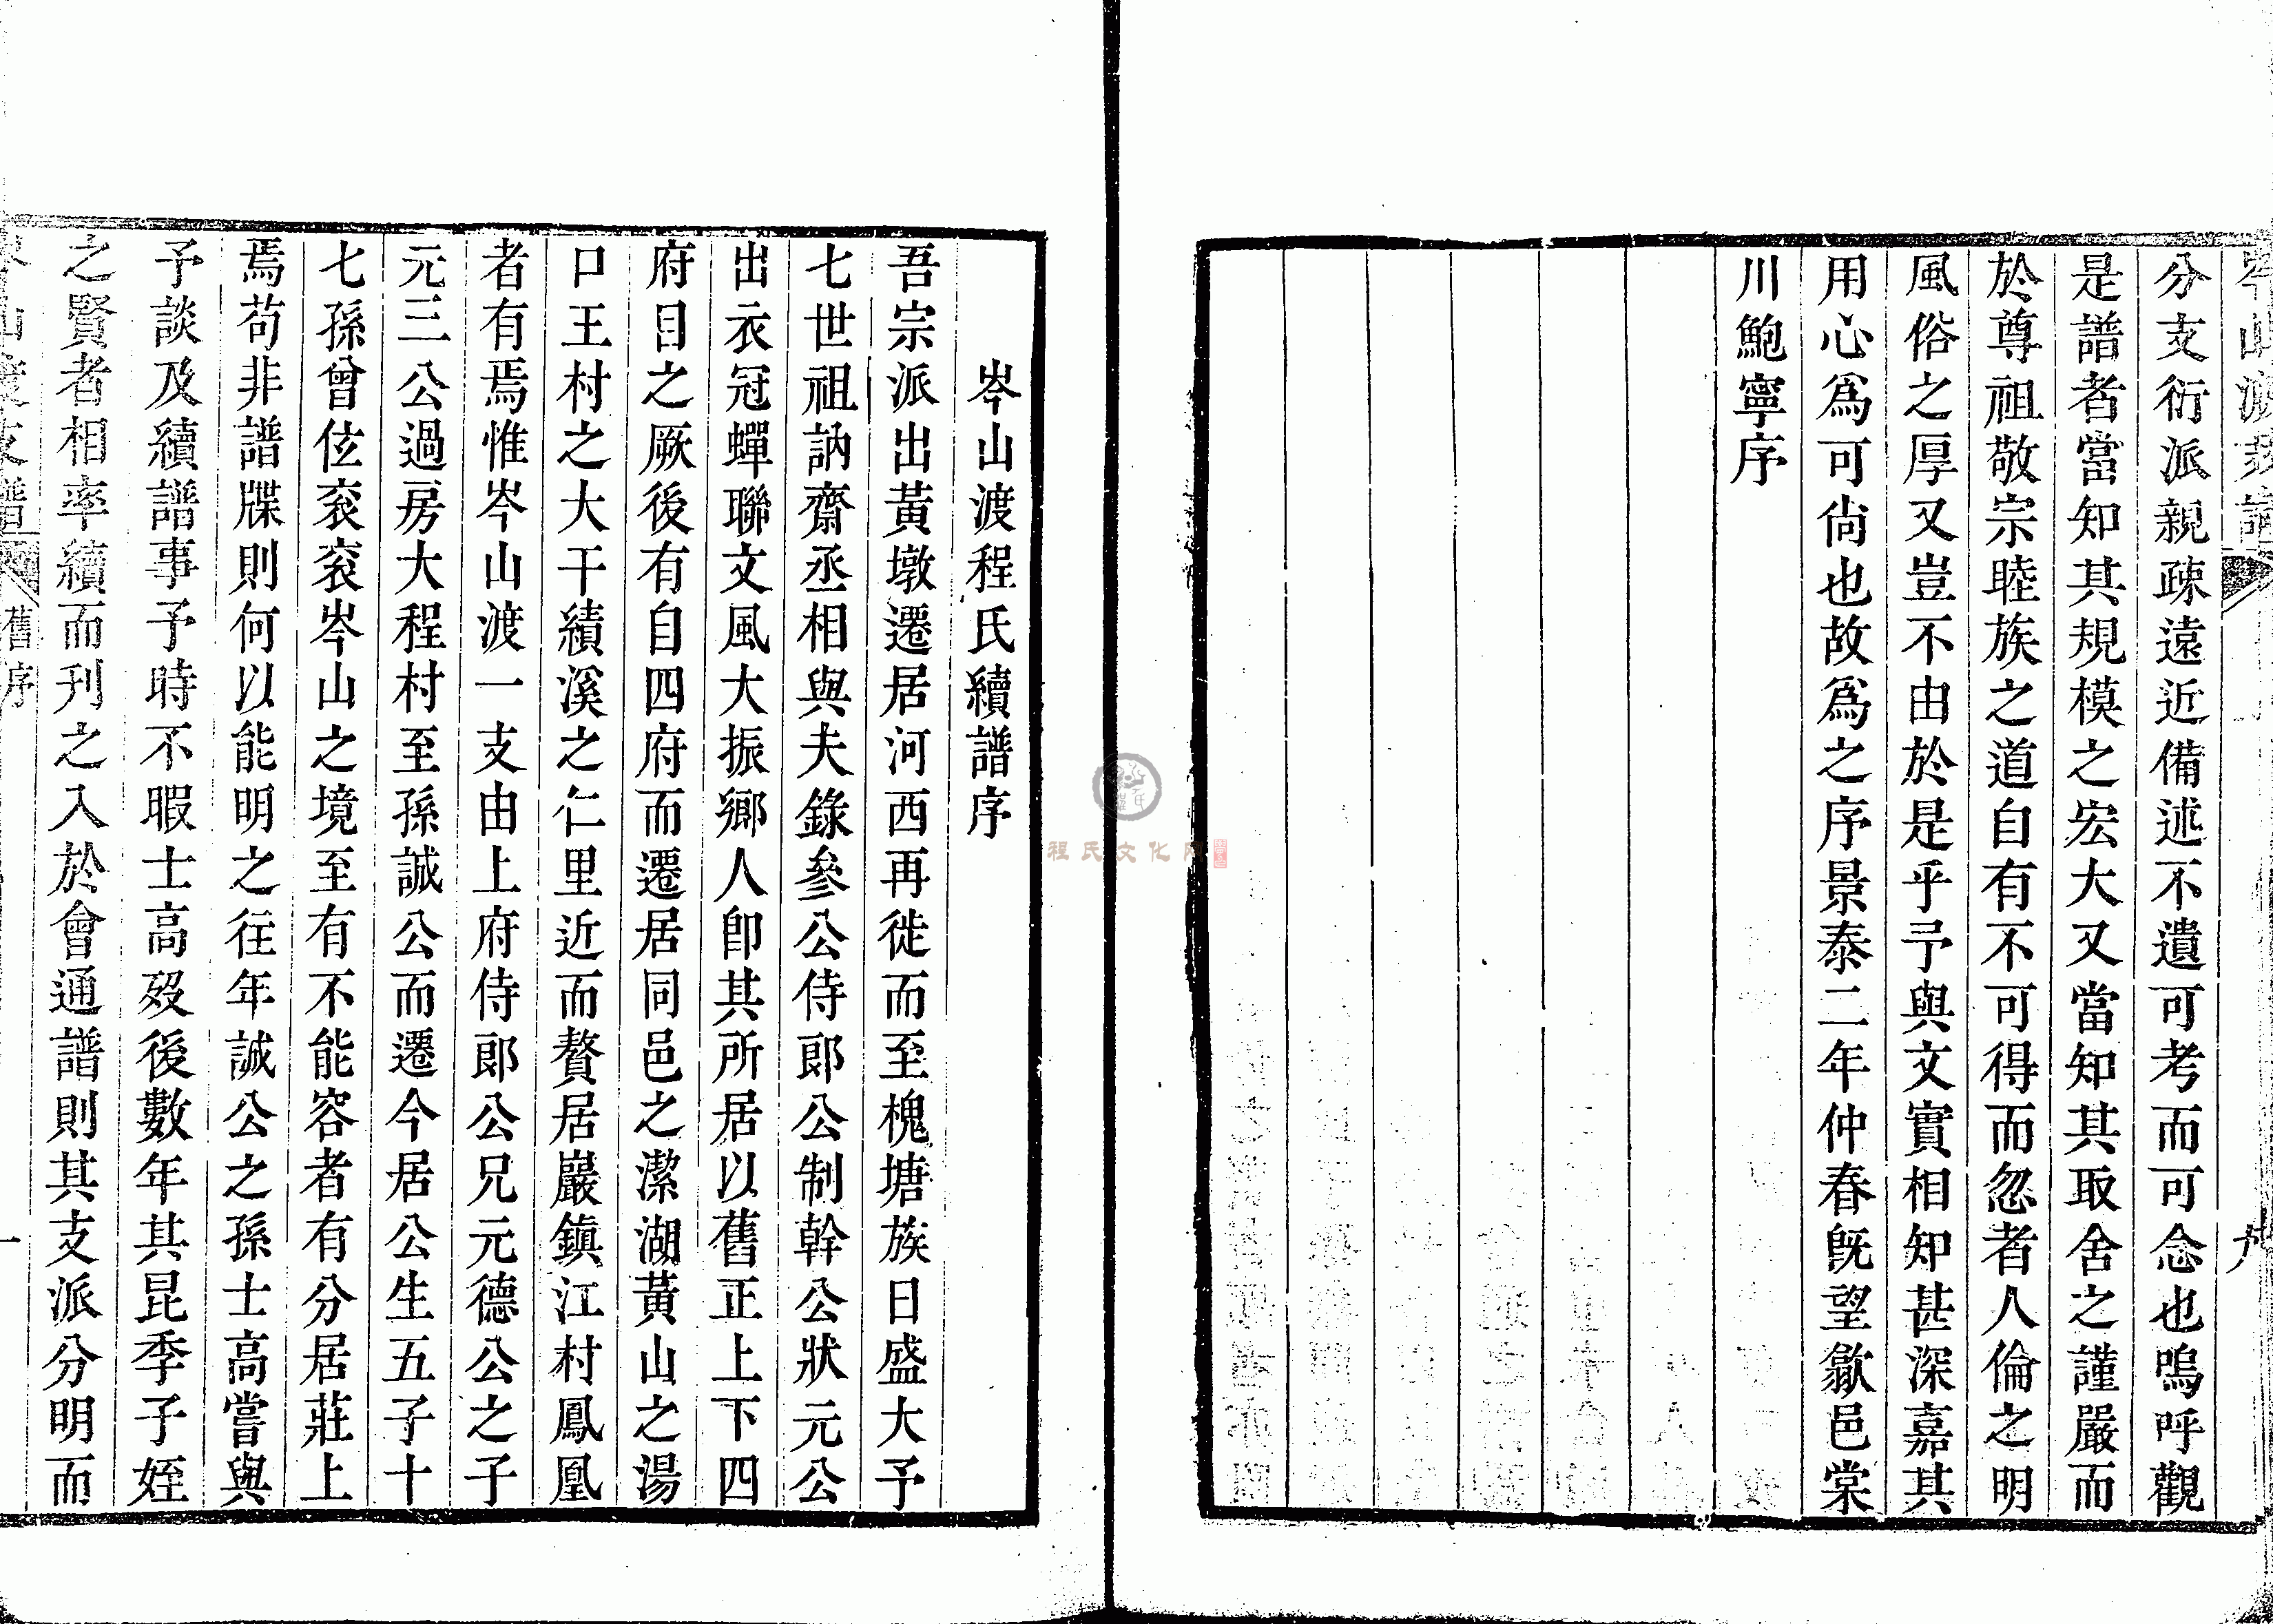 岑山渡支譜
分支衍派親疎遠近備述不遺可考而可念也嗚呼觀
是譜者當知其規模之宏大又當知其取舍之謹嚴而
於尊祖敬宗睦族之道自有不可得而忽者人倫之明
風俗之厚又豈不由於是乎予與文實相知甚深嘉其
用心爲可尙也故爲之序景泰二年仲春旣望歙邑棠
川鮑寧序
岑山渡程氏續譜序
吾宗派出黃墩遷居河西再徙而至槐塘族日盛大予
七世祖訥齋丞相與夫錄參公侍郞公制幹公狀元公
出衣冠蟬聯文風大振鄕人卽其所居以舊正上下四
府目之厥後有自四府而遷居同邑之潔湖黃山之湯
口王村之大干績溪之仁里近而贅居巖鎭江村鳳凰
者有焉惟岑山渡一支由上府侍郞公兄元德公之子
元三公過房大程村至孫誠公而遷今居公生五子十
七孫曾伭衮衮岑山之境至有不能容者有分居莊上
焉苟非譜牒則何以能明之徃年誠公之孫士高嘗與
予談及續譜事予時不暇士高歿後數年其昆季子姪
之賢者相率續而刊之入於會通譜則其支派分明而
岑山渡支譜 舊序 一
程氏文化网